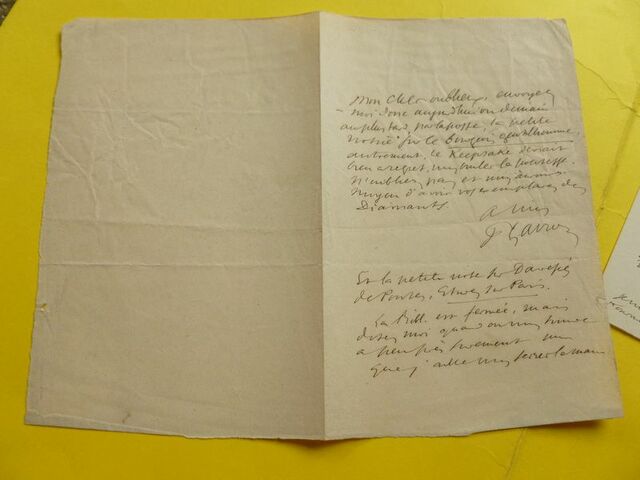 Mon cher oublieux, envoyez
moi donc aujourd'hui ou demain
au plus tard, par la poste, la petite
notice sur le Bourgeois gentilhomme,
autrement, le Keepsake devrait
bien a regret,
N'oubliez pas et
moyen d'avoir vos exemplaires des
Diamants.
a vous
Et la petite note sur
de Paris.
La Bibl. est fermée, mais
dites moi quand on vous trouve
a peu près surement
que j'aille vous serrer la main